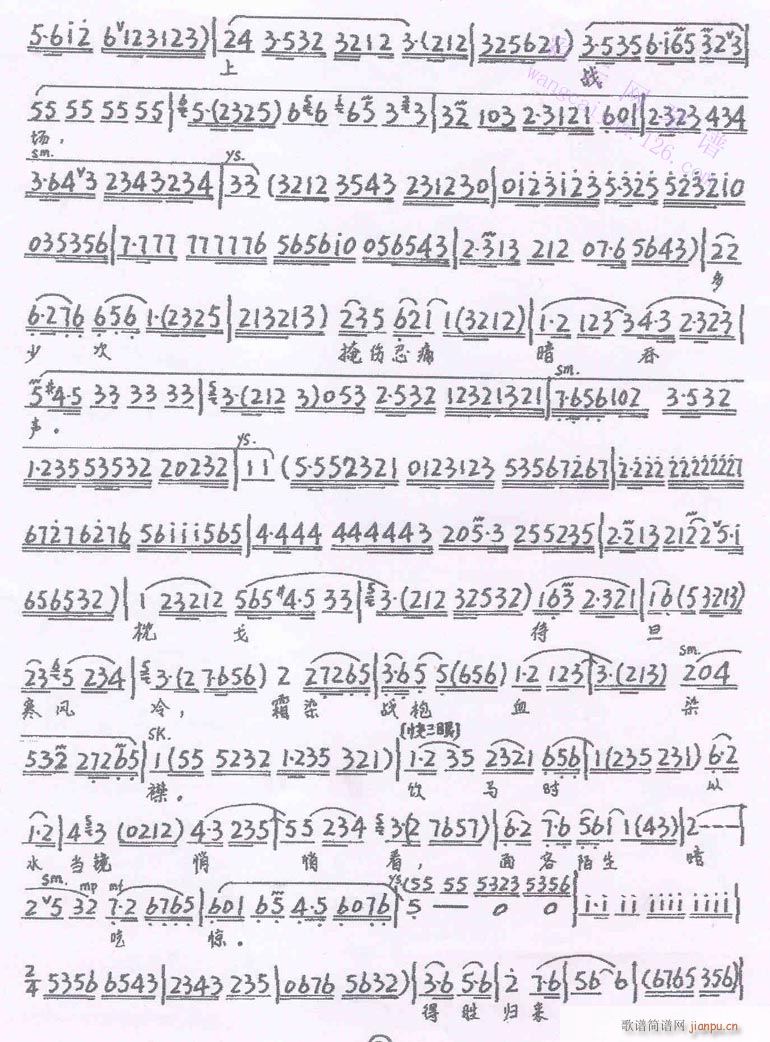 5·6i2 6123123)|24 3·532 3212 3·(212|325621)|3·535 6·i65 3273|
上 战
55 55 55 55|5·(2325) 6 6 65 3 3|32 103 2·3121 601|2·323 434
场，
sm. ys.
3·643 2343234|33 (3212 3543 231230|0123123 5·325 523210
035356|7·777 777776 5656i0 056543|2·313 212 07·6 5643)|22
多
6·276 656 1·(2325|213213) 235 621 1(3212)|1·2 123 34·3 2·323|
少 次 掩伤忍痛 暗 吞
sm.
5#4·5 33 33 33|3·(212 3)053 2·532 12321321|7·656102 3·532
声。
ys.
1·23553532 20232|11 (5·552321 0123123 53567267|2·222 22222227
67276276 56iii565|4·444 444443 205·3 255235|2·213 21225·i
656532)|1 23212 565#4·5 33|3·(212 32532) 163 2·321|16(53213)
枕 戈 待 旦
sm.
235 234|3·(2 7·656) 2 27265|3·65 5(656) 1·2 123|3·(213) 204
寒风 冷， 霜染 战袍 血 染
SK. 〔快三眼〕
532 27265|1(55 5232 1·235 321)|1·2 35 2321 656|1(235 231)|6·2
襟。 饮 马 时 以
1·2|4 3 (0212) 4·3 235|55 234 3(2 7657)|6·2 7·6 561 1(43)|2---|
水当镜 悄 悄 看， 面容陌生 暗
sm. mp mf ys.
25 32 7·2 6765|601 65 4·5 6076|5 — 0 0|i·i ii iiii iiii
(55 55 5323 5356
吃 惊。
2/4 5356 6543|2343 235|0676 5632)|3·6 5·6|2 7·6|56 6|(6765 356)|
得 胜 归来
歌谱简谱网 jianpu.cn